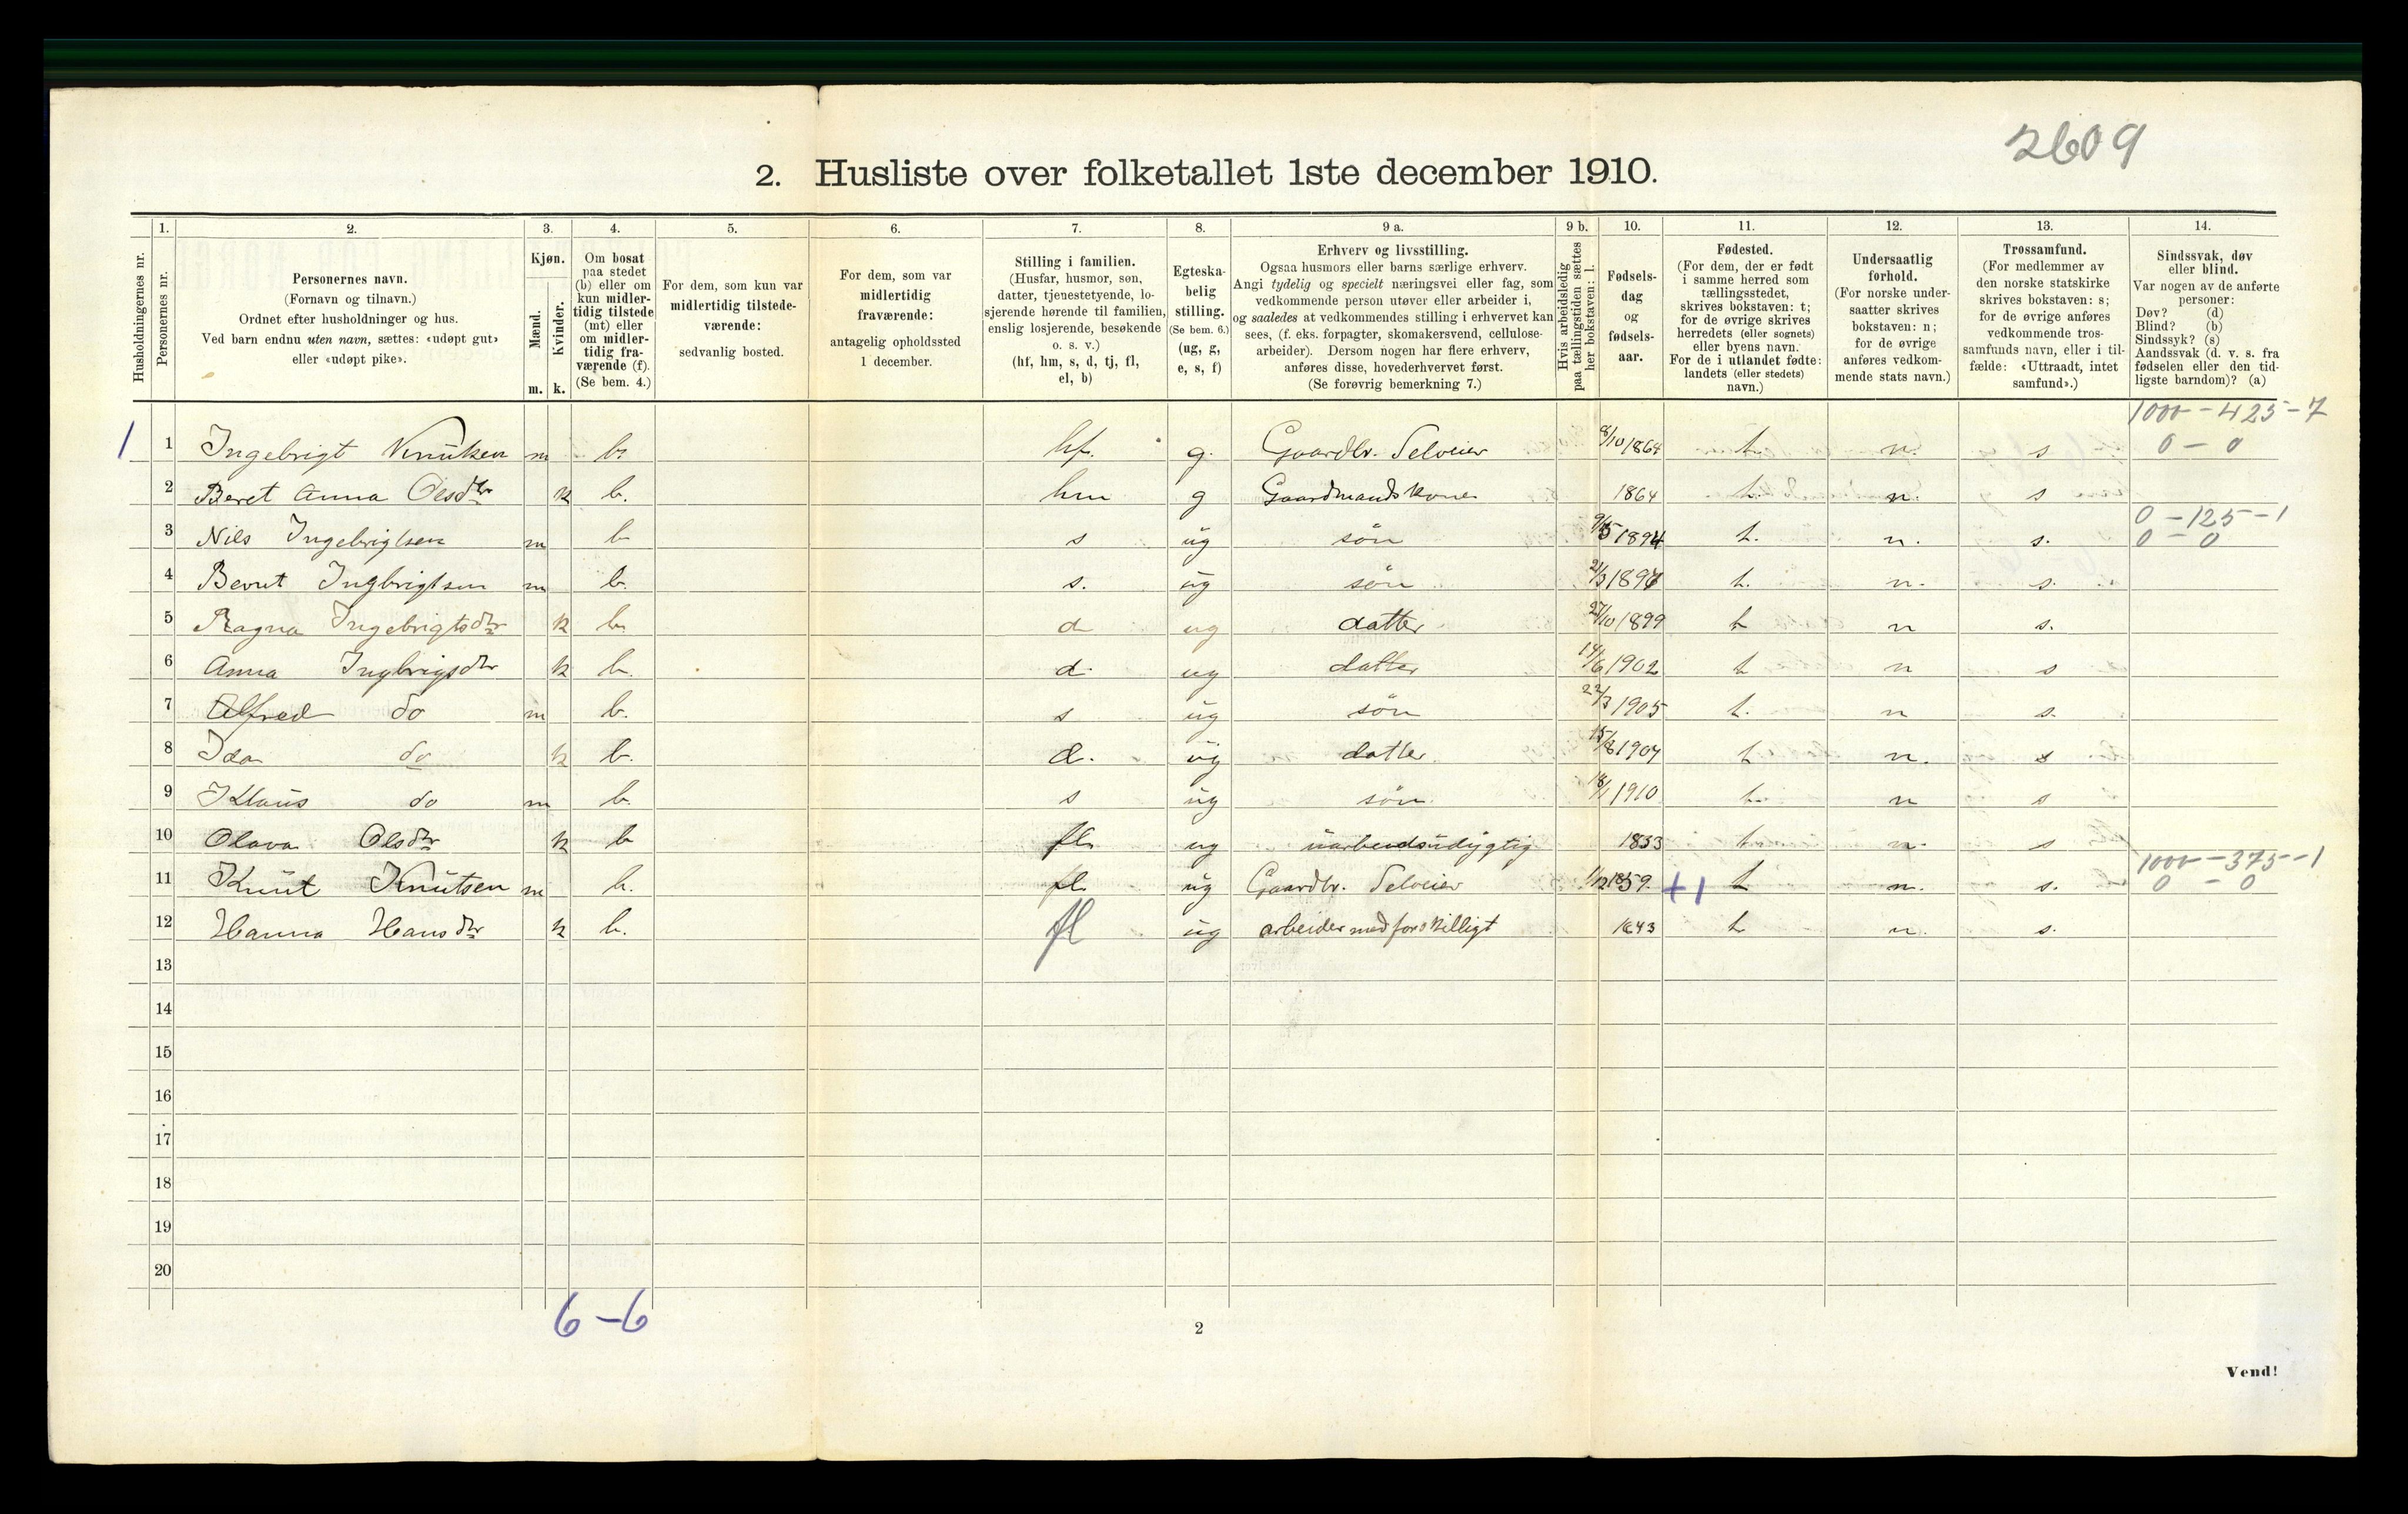 2609
2. Husliste over folketallet 1ste december 1910.
1. 2. 3. 4. 5. 6. 7. 8. 9 a. 9 b. 10. 11. 12. 13. 14.
Husholdningernes nr.
Personernes nr.
Personernes navn.
(Fornavn og tilnavn.)
Ordnet efter husholdninger og hus.
Ved barn endnu uten navn, sættes: «udøpt gut»
eller «udøpt pike».
Kjøn.
Mænd.
Kvinder.
m. k.
Om bosat
paa stedet
(b) eller om
kun midler-
tidig tilstede
(mt) eller
om midler-
tidig fra-
værende (f).
(Se bem. 4.)
For dem, som kun var
midlertidig tilstede-
værende:
sedvanlig bosted.
For dem, som var
midlertidig
fraværende:
antagelig opholdssted
1 december.
Stilling i familien.
(Husfar, husmor, søn,
datter, tjenestetyende, lo-
sjerende hørende til familien,
enslig losjerende, besøkende
o. s. v.)
(hf, hm, s, d, tj, fl,
el, b)
Egteska-
belig
stilling.
(Se bem. 6.)
(ug, g,
e, s, f)
Erhverv og livsstilling.
Ogsaa husmors eller barns særlige erhverv.
Angi tydelig og specielt næringsvei eller fag, som
vedkommende person utøver eller arbeider i,
og saaledes at vedkommendes stilling i erhvervet kan
sees, (f. eks. forpagter, skomakersvend, cellulose-
arbeider). Dersom nogen har flere erhverv,
anføres disse, hovederhvervet først.
(Se forøvrig bemerkning 7.)
Hvis arbeidsledig
paa tællingstiden sættes
her bokstaven: l.
Fødsels-
dag
og
fødsels-
aar.
Fødested.
(For dem, der er født
i samme herred som
tællingsstedet,
skrives bokstaven: t;
for de øvrige skrives
herredets (eller sognets)
eller byens navn.
For de i utlandet fødte:
landets (eller stedets)
navn.)
Undersaatlig
forhold.
(For norske under-
saatter skrives
bokstaven: n;
for de øvrige
anføres vedkom-
mende stats navn.)
Trossamfund.
(For medlemmer av
den norske statskirke
skrives bokstaven: s;
for de øvrige anføres
vedkommende tros-
samfunds navn, eller i til-
fælde: «Uttraadt, intet
samfund».)
Sindssvak, døv
eller blind.
Var nogen av de anførte
personer:
Døv? (d)
Blind? (b)
Sindssyk? (s)
Aandssvak (d. v. s. fra
fødselen eller den tid-
ligste barndom)? (a)
1000 - 425 - 7
1 1 Ingebrigt Knutsen m b. hf. g. Gaardbr. Selveier 8/10 1864 t. n. s 0 - 0
2 Beret Anna Olsdtr k b. hm g Gaardmandskone 1864 t. n. s
0 - 125 - 1
3 Nils Ingebrigtsen m b s ug søn 9/5 1894 t. n. s. 0 - 0
4 Bernt Ingbrigtsen m b. s. ug søn 21/3 1897 t. n. s.
5 Ragna Ingebrigtsdtr k b. d ug datter 27/10 1899 t n s.
6 Anna Ingbrigsdtr k b. d. ug datter 14/6 1902 t n s
7 Alfred do m b. s ug søn 22/3 1905 t. n s.
8 Ida do k b. d. ug datter 15/8 1907 t n. s
9 Klaus do m b. s ug søn 18/1 1910 t. n s
10 Olava Olsdtr k b fl. ug uarbeidsudygtig 1833 t n. s
1000 - 375 - 1
11 Knut Knutsen m b. fl. ug Gaardbr. Selveier 1/12 1859. +1 t n. s. 0 - 0
12 Hanna Hansdtr k b. fl ug arbeider med forskilligt 1843 t n. s.
13
14
15
16
17
18
19
20
6 - 6
2
Vend!